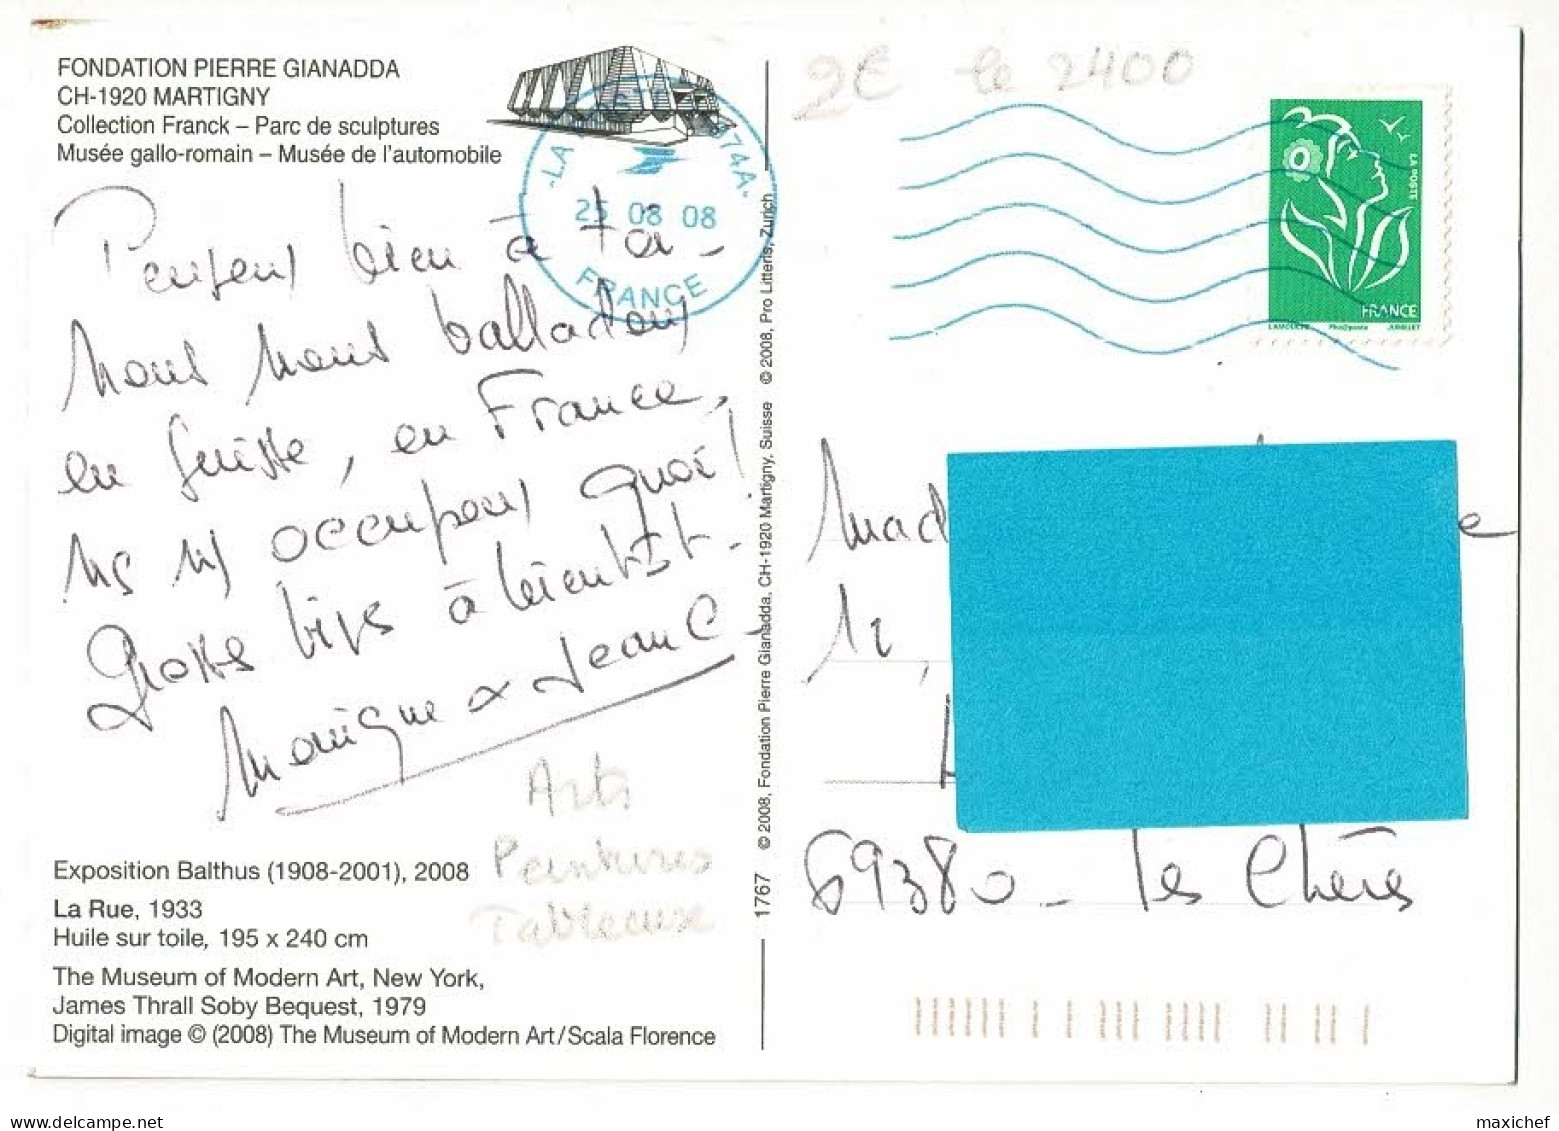 FONDATION PIERRE GIANADDA
CH-1920 MARTIGNY
Collection Franck – Parc de sculptures
Musée gallo-romain – Musée de l'automobile
Pensons bien à toi –
Nous nous balladons
en Suisse, en France,
ns ns occupons quoi!
Grosses bises à bientôt.
Monique & Jean C.
Arts
Peintures
Tableaux
Exposition Balthus (1908-2001), 2008
La Rue, 1933
Huile sur toile, 195 x 240 cm
The Museum of Modern Art, New York,
James Thrall Soby Bequest, 1979
Digital image © (2008) The Museum of Modern Art/Scala Florence
1767 © 2008, Fondation Pierre Gianadda, CH-1920 Martigny, Suisse © 2008, Pro Litteris, Zurich
LA 74A
25 08 08
FRANCE
2€ le 2400
LA POSTE
FRANCE
LAMOUCHE Phil@poste JUMELET
Mad e
12,
69380 – les Chères
maxichef